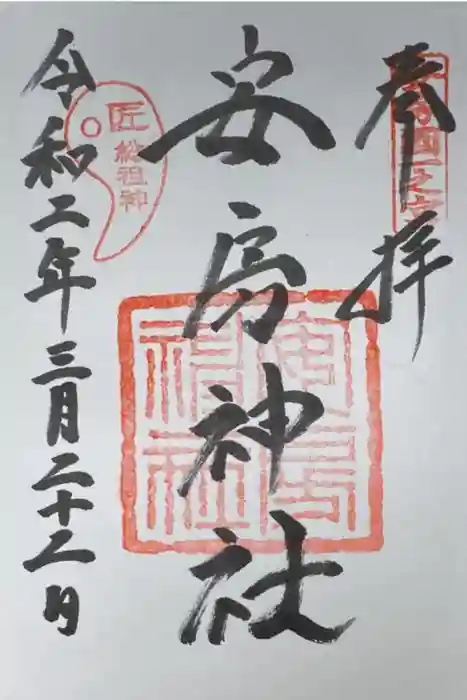 奉拝
安房国一之宮
安房神社
安房神社
匠総祖神
令和二年三月二十二日